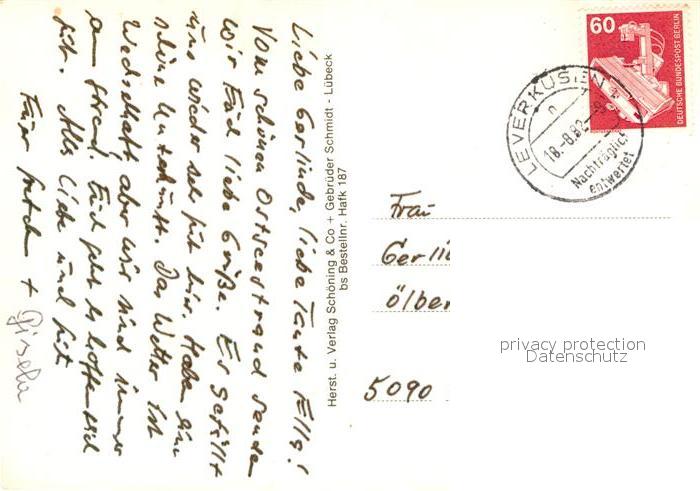 Liebe Gerlinde, liebe Tante Ella!
Vom schönen Ostseestrand senden
wir Euch liebe Grüße. Es gefällt
uns wieder sehr gut hier. Haben eine
schöne Unterkunft. Das Wetter ist
wechselhaft, aber wir sind immer
am Strand. Euch geht es hoffentlich
gut. Alles Liebe und Gute
Euer +
Gisela
Herst. u. Verlag Schöning & Co + Gebrüder Schmidt - Lübeck
bs Bestellnr. Hafk 187
60
DEUTSCHE BUNDESPOST BERLIN
LEVERKUSEN 1
n
18.-8.82-8
Nachträglich
entwertet
Frau
Gerli
Ölber
5090
privacy protection
Datenschutz